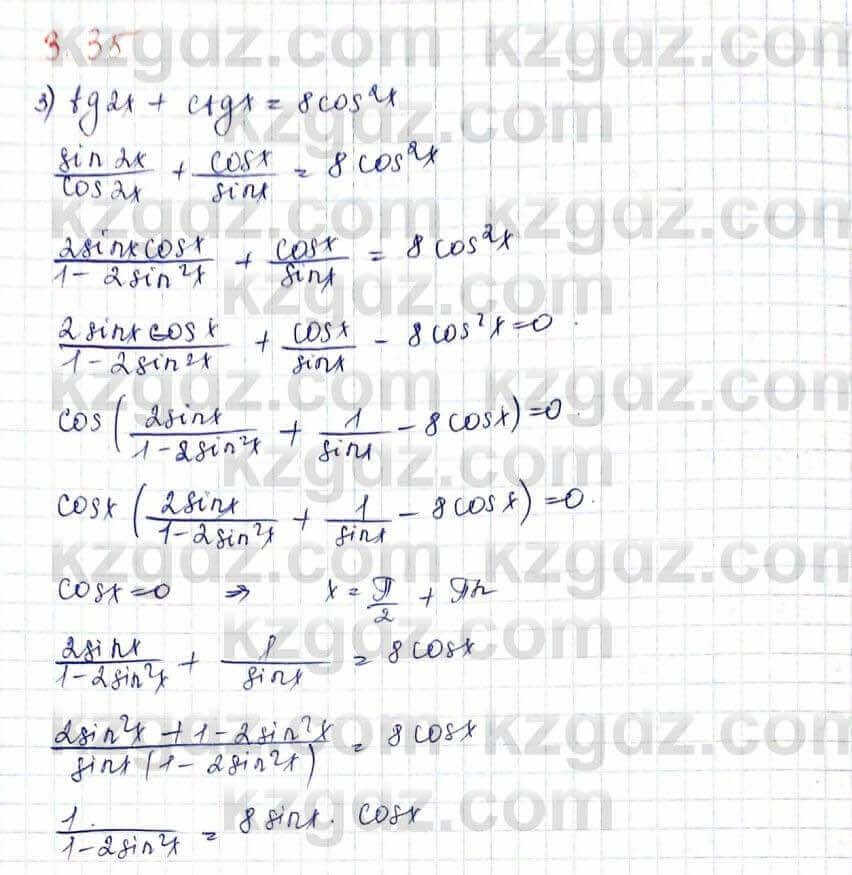 3.35
kzgdz.com
3) tg2x + ctgx = 8cos²x
sin 2x / cos 2x + cosx / sinx = 8 cos²x
2sinxcosx / 1 - 2sin²x + cosx / sinx = 8 cos²x
2 sinx cosx / 1 - 2sin²x + cosx / sinx - 8 cos²x = 0.
cos (2sinx / 1 - 2sin²x + 1 / sinx - 8 cosx) = 0.
cosx (2sinx / 1 - 2sin²x + 1 / sinx - 8 cosx) = 0.
cosx = 0 ⇒ x = π / 2 + πn
2sinx / 1 - 2sin²x + 1 / sinx = 8 cosx
2sin²x + 1 - 2sin²x / sinx (1 - 2sin²x) = 8 cosx
1 / 1 - 2sin²x = 8 sinx · cosx